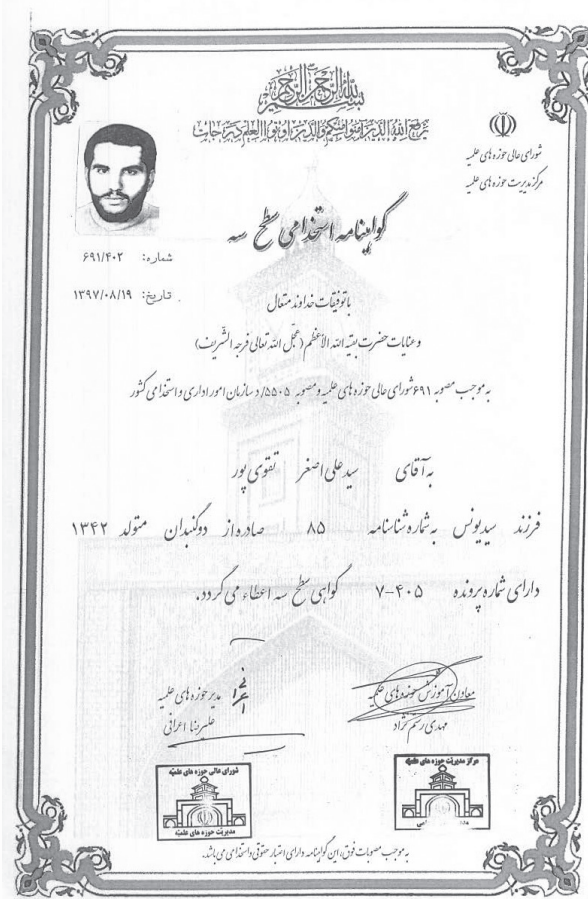 بسم الله الرحمن الرحیم
یرفع الله الذین آمنوا منکم والذین اوتوا العلم درجات
شورای عالی حوزه های علمیه
مرکز مدیریت حوزه های علمیه
گواهینامه استخدامی سطح سه
شماره: ۶۹۱/۴۰۲
تاریخ: ۱۳۹۷/۰۸/۱۹
با توفیقات خداوند متعال
و عنایات حضرت بقیه الله الأعظم (عجّل الله تعالی فرجه الشّریف)
به موجب مصوبه ۶۹۱ شورای عالی حوزه های علمیه و مصوبه ۵۵۰۵/د سازمان امور اداری و استخدامی کشور
به آقای سید علی اصغر تقوی پور
فرزند سید یونس به شماره شناسنامه ۸۵ صادره از دوگنبدان متولد ۱۳۴۲
دارای شماره پرونده ۷-۴۰۵ گواهی سطح سه اعطاء می گردد.
معاون آموزش حوزه های علمیه
مهدی رستم نژاد
مدیر حوزه های علمیه
علیرضا اعرافی
مرکز مدیریت حوزه های علمیه
شورای عالی حوزه های علمیه
مدیریت حوزه های علمیه
به موجب مصوبات فوق، این گواهینامه دارای اعتبار حقوقی و استخدامی می باشد.